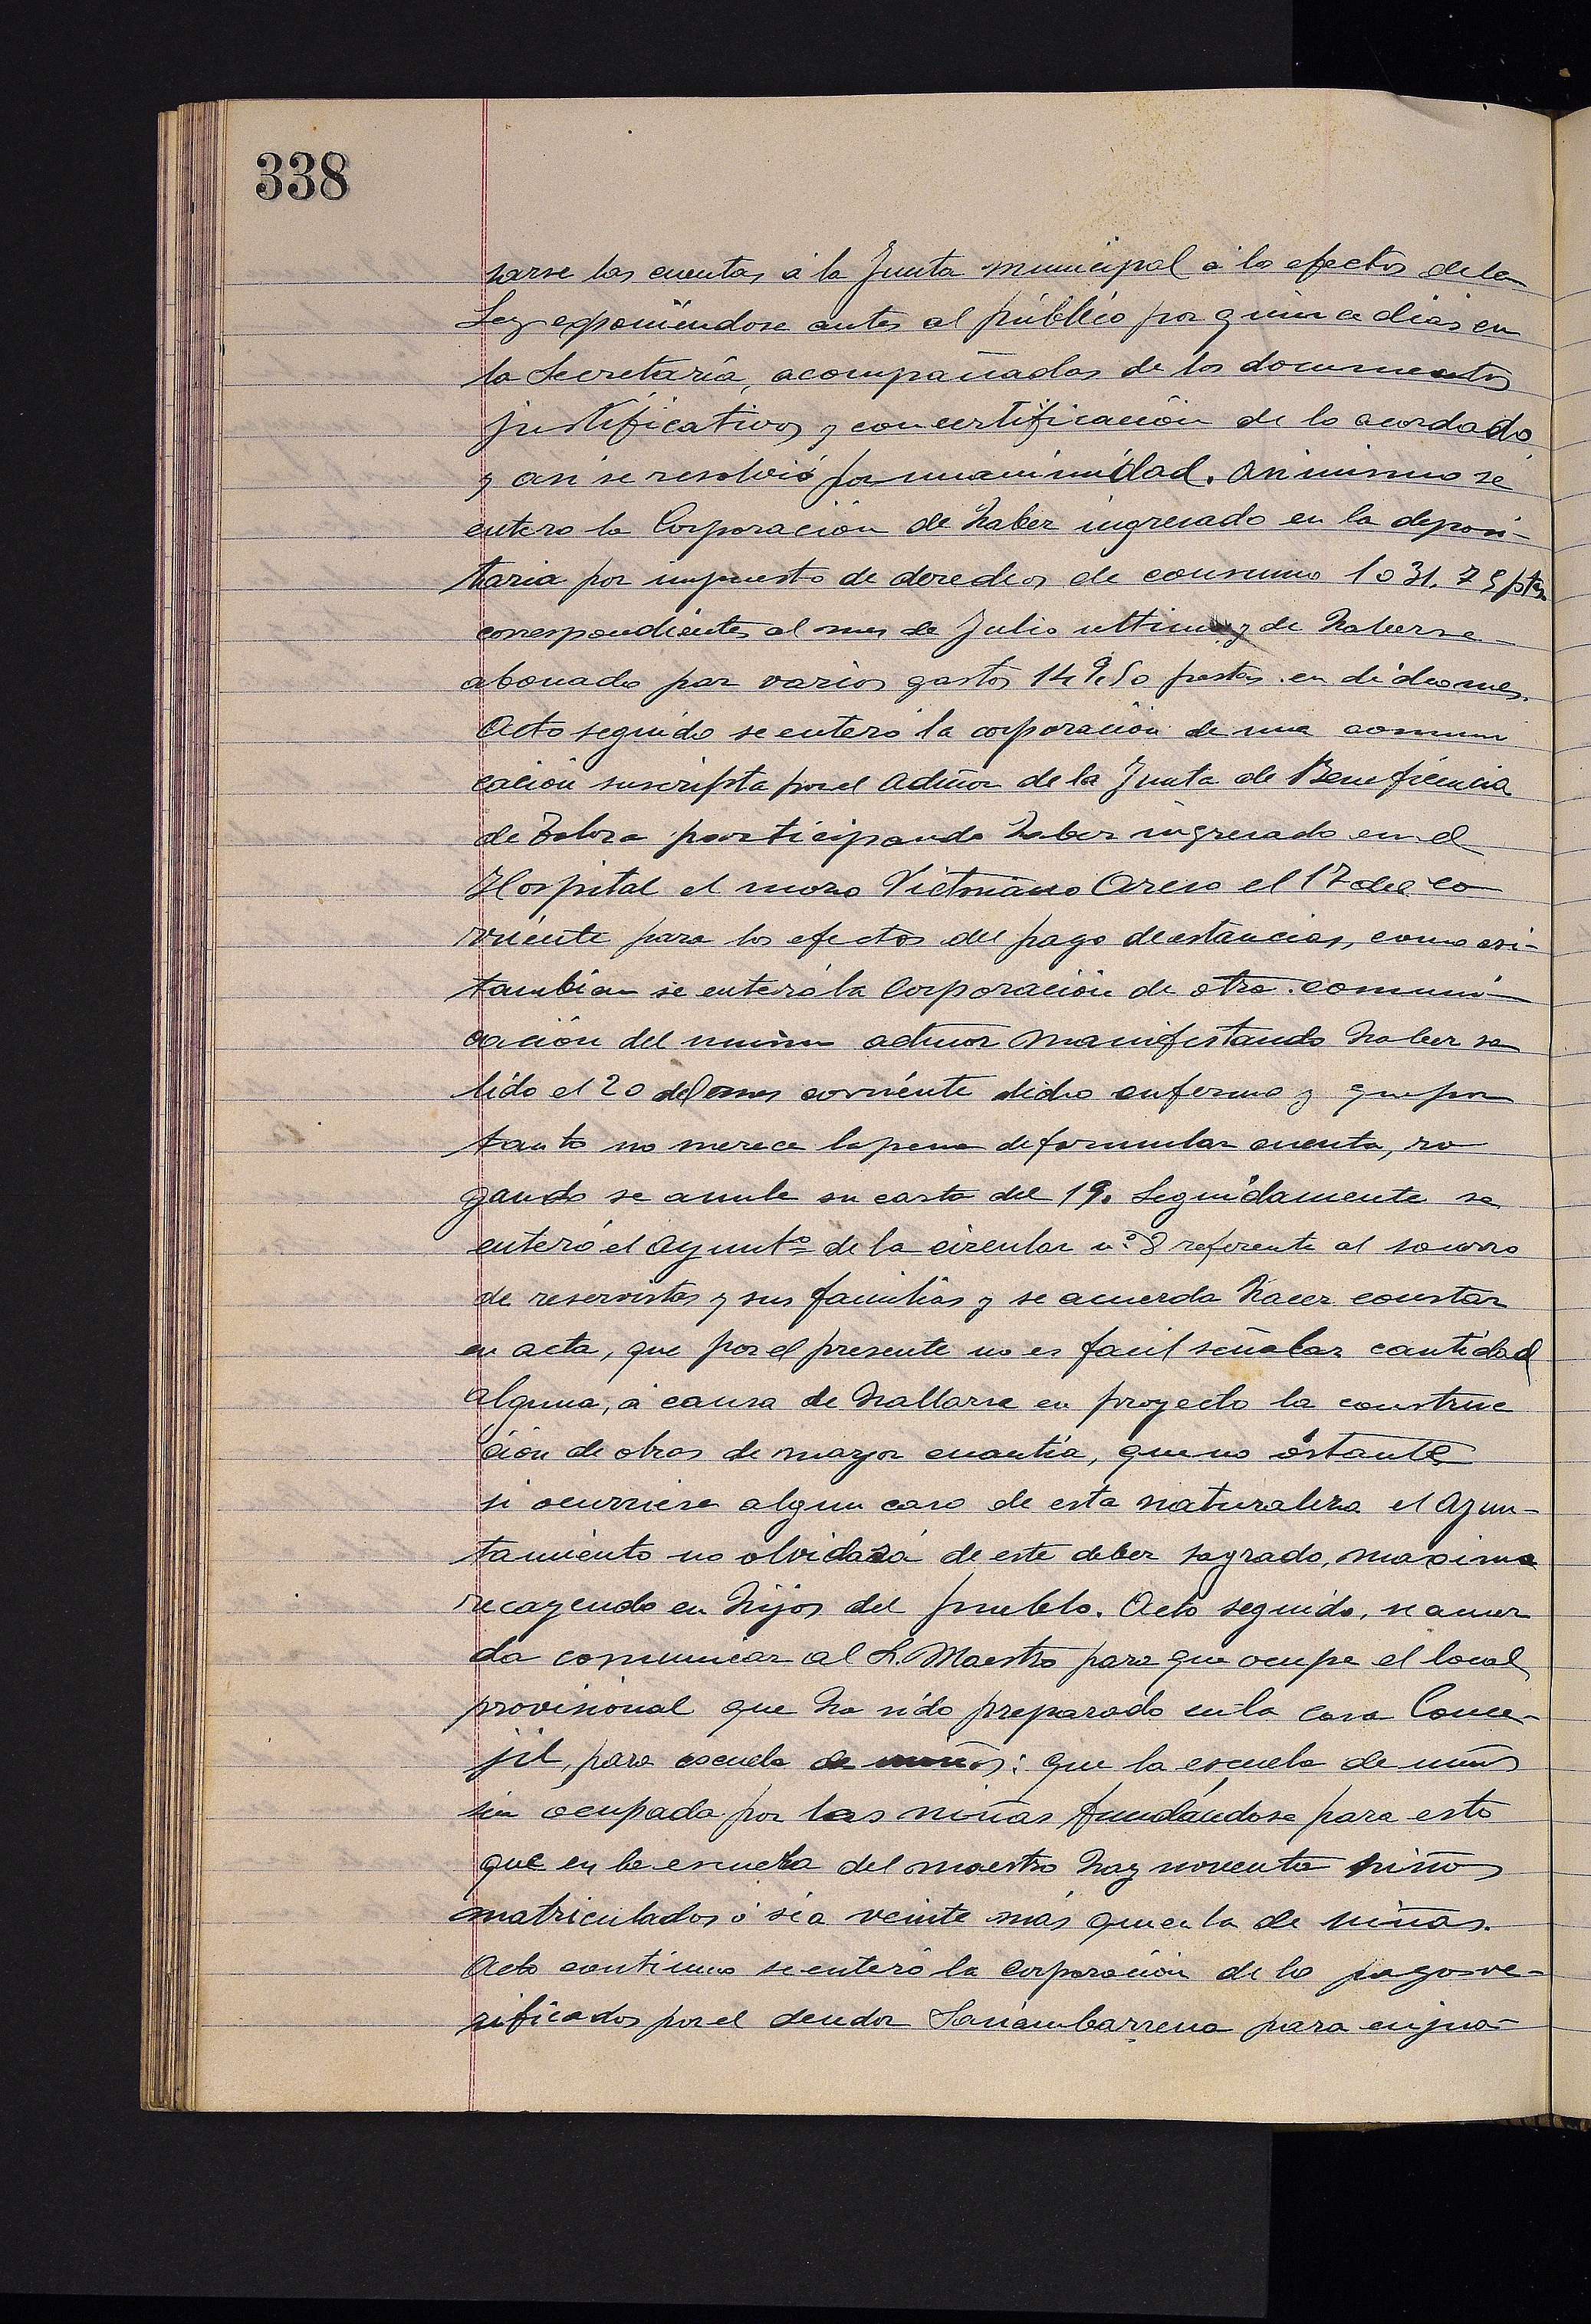 338
sarse las cuentas á la Junta municipal á los efectos de la
Ley exponiéndose antes al público por quince dias en
la Secretaría, acompañadas de los documentos
justificativos y con certificación de lo acordado
y asi se resolvió por unanimidad. Asimismo se
enteró la Corporación de haber ingresado en la deposi-
taria por impuesto de derechos de consumo 1031.75 ptas.
correspondientes al mes de Julio ultimo y de haberse
abonado por varios gastos 149,50 pestas. en dicho mes.
Acto seguido se enteró la corporación de una comuni
cación suscripta por el Admor de la Junta de Beneficencia
de Tolosa participando haber ingresado en el
Hospital el mozo Victoriano Oreso el 17 del co
rriente para los efectos del pago de estancias, como asi-
tambien se enteró la Corporación de otra comuni-
cación del mismo admor manifestando haber sa
lido el 20 del mes corriente dicho enfermo y que por
tanto no merece la pena de formular cuenta, ro
gando se anule su carta del 19. Seguidamente se
enteró el Ayuntº de la circular nº 8 referente al socorro
de reservistas y sus familias y se acuerda hacer constar
en acta, que por el presente no es facil señalar cantidad
alguna, á causa de hallarse en proyecto la construc
ción de obras de mayor cuantía, que no ostante
si ocurriese algun caso de esta naturaleza el Ayun-
tamiento no olvidará de este deber sagrado, maxime
recayendo en hijos del pueblo. Acto seguido, se acuer
da comunicar al S. Maestro para que ocupe el local
provisional que ha sido preparado en la casa Conce-
jil, para escuela de niños: que la escuela de niños
sea ocupada por las niñas fundándose para esto
que en la escuela del maestro hay noventa niños
matriculados ó séa veinte más que en la de niñas.
Acto continuo se enteró la Corporación de los pagos ve-
rificados por el deudor Sariambarrena para enjua-